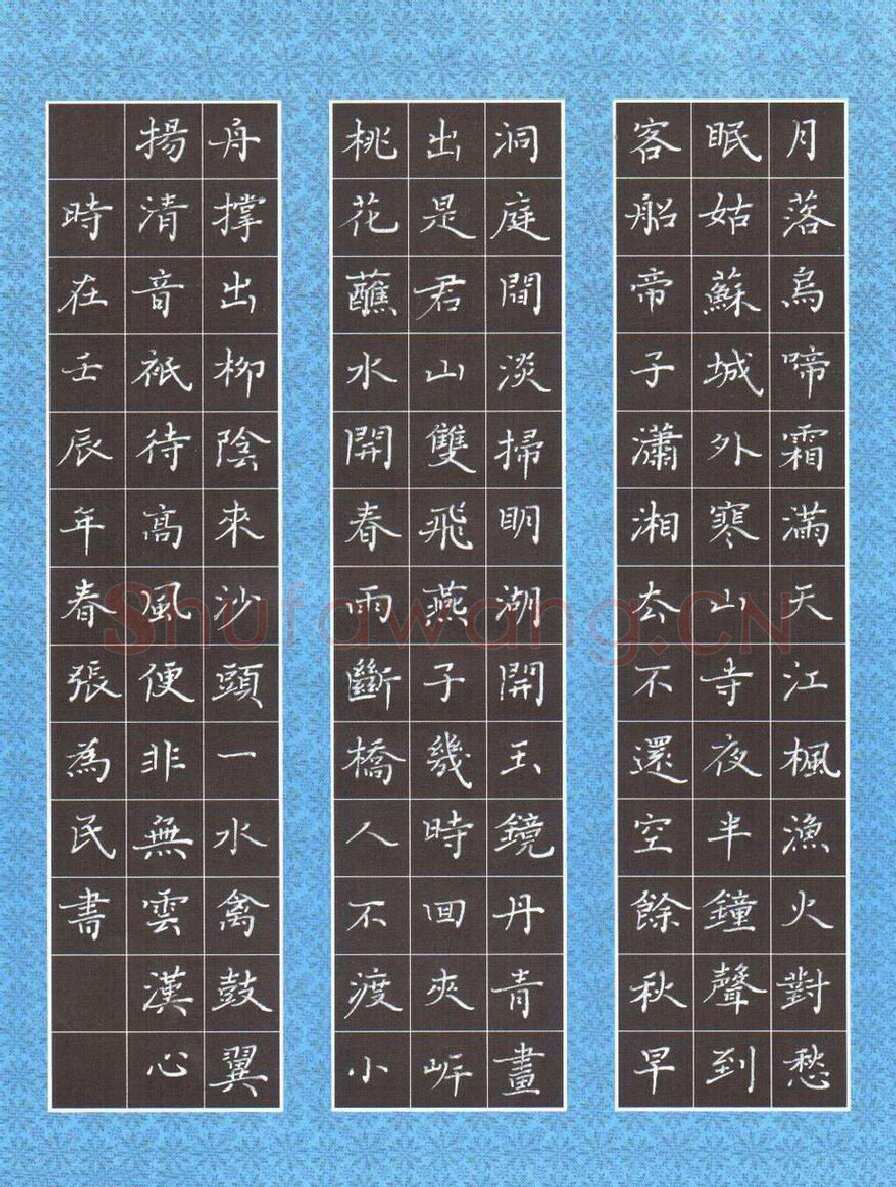 月落烏啼霜滿天江楓漁火對愁
眠姑蘇城外寒山寺夜半鐘聲到
客船帝子瀟湘去不還空餘秋早
洞庭間淡掃明湖開玉鏡丹青畫
出是君山雙飛燕子幾時回夾岸
桃花蘸水開春雨斷橋人不渡小
舟撐出柳陰來沙頭一水禽鼓翼
揚清音祇待高風便非無雲漢心
時在壬辰年春張為民書
Shufawang.CN